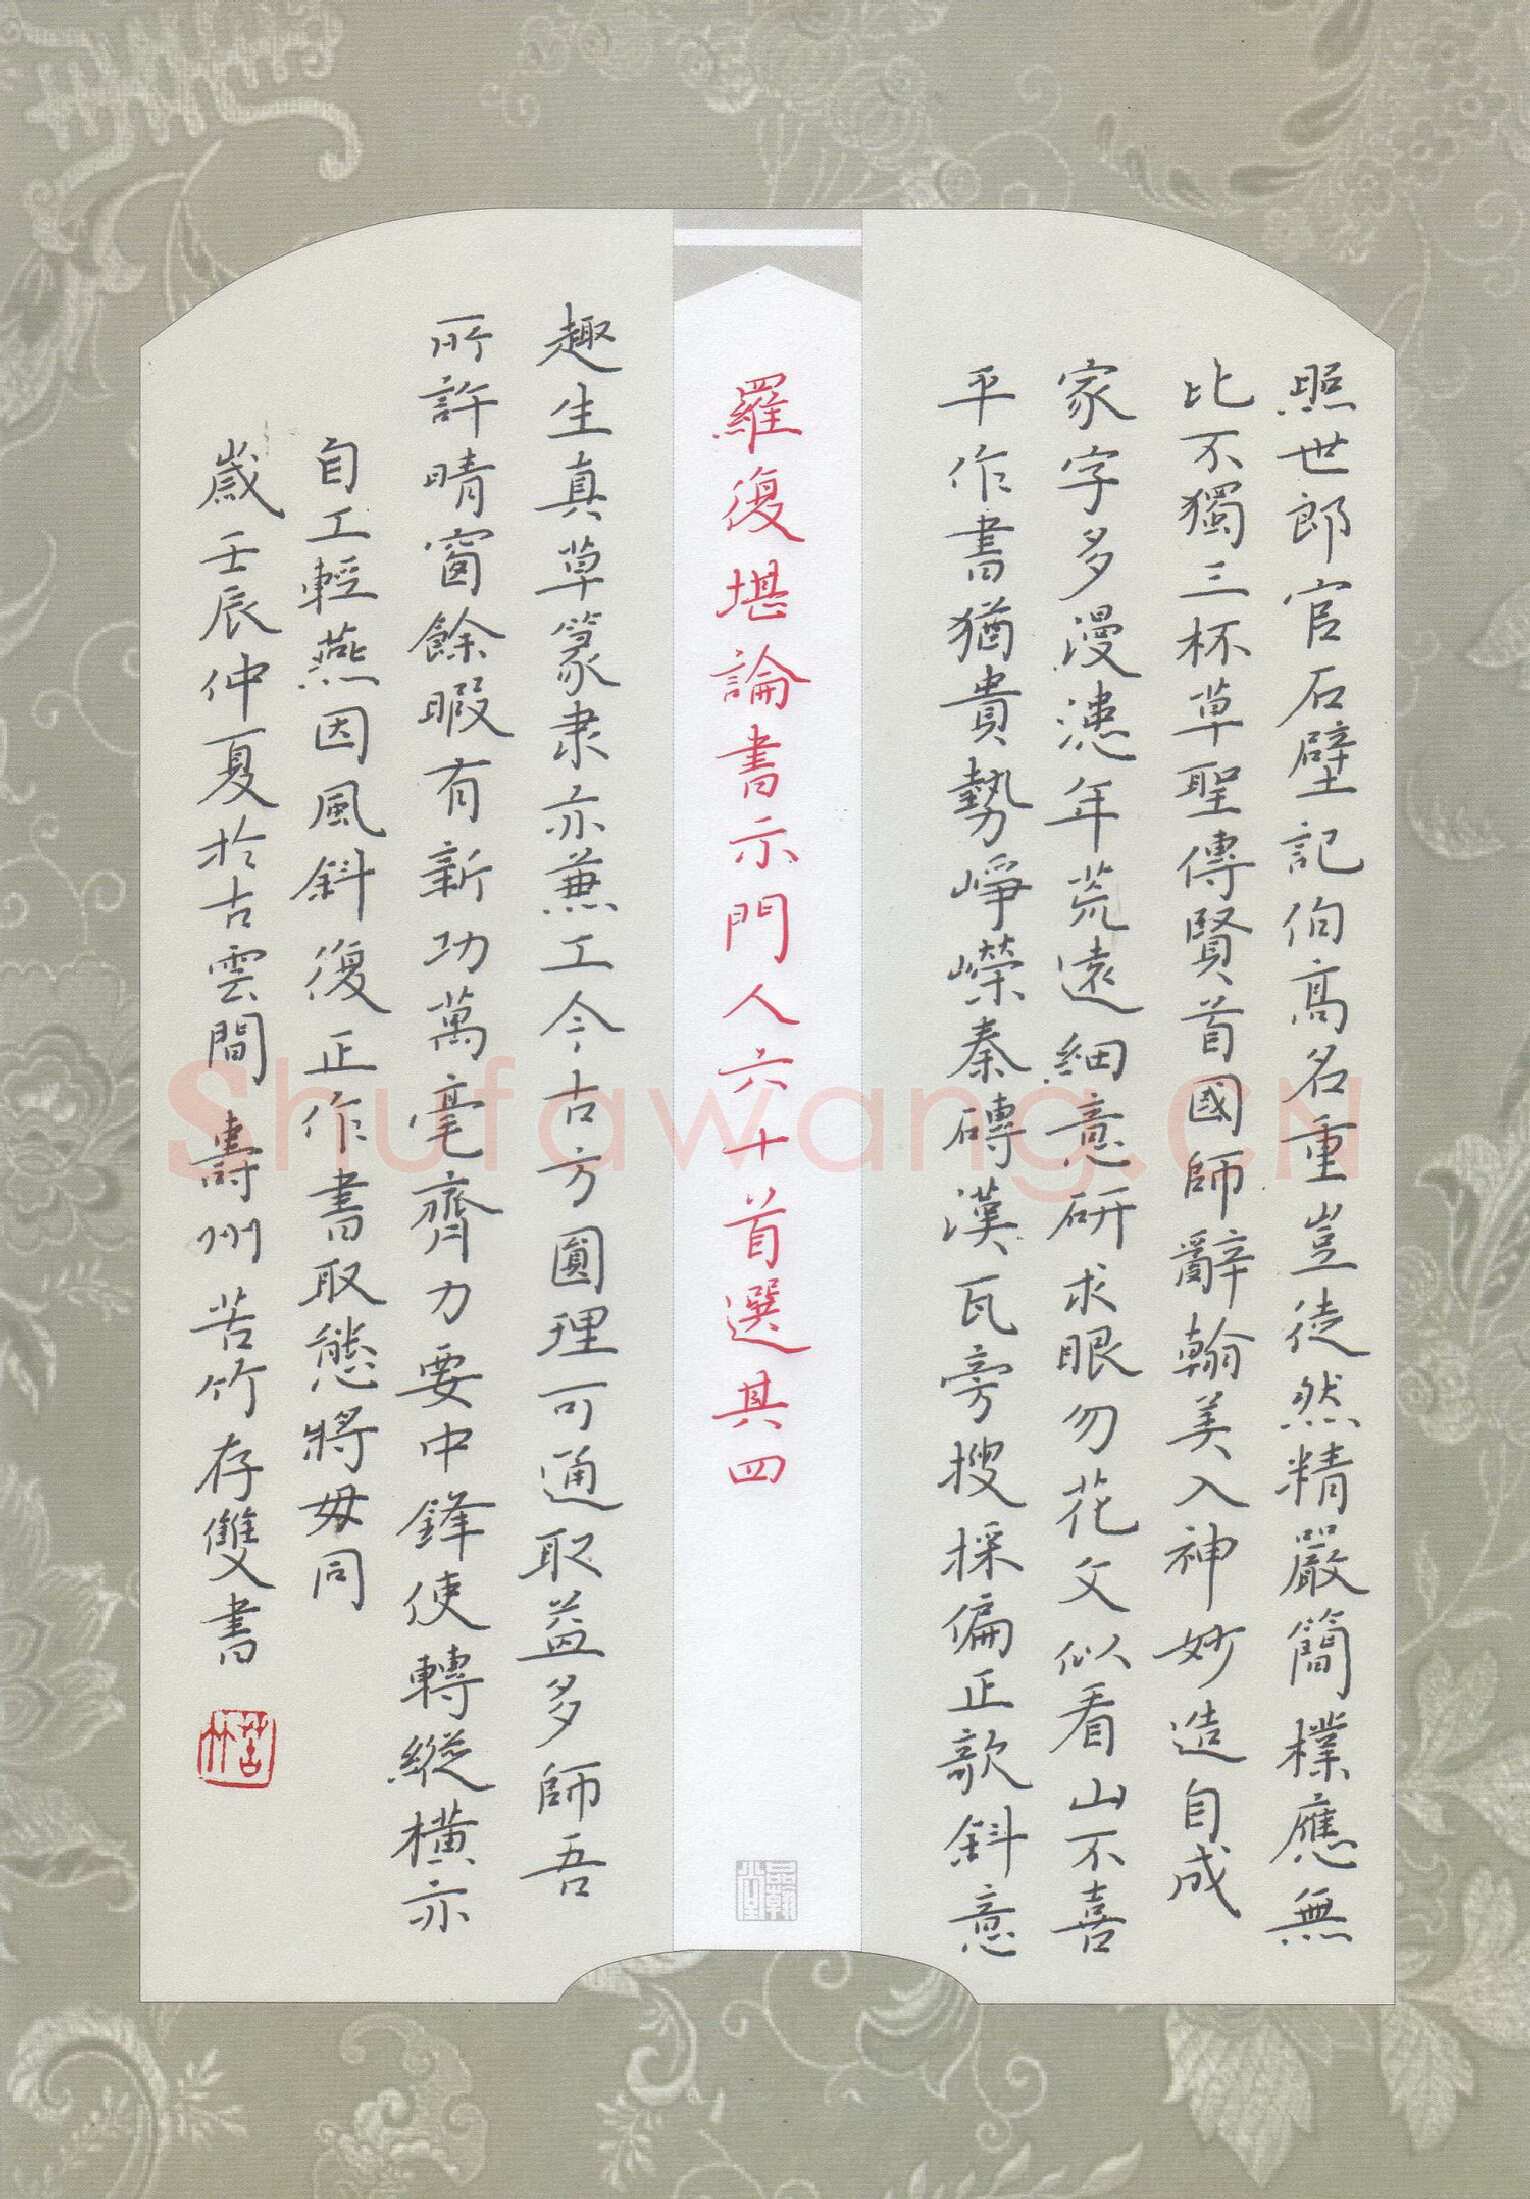 照世郎官石壁記伯高名重豈徒然精嚴簡樸應無
比不獨三杯草聖傳賢首國師辭翰美入神妙造自成
家字多漫漶年荒遠細意研求眼勿花文似看山不喜
平作書猶貴勢崢嶸秦磚漢瓦旁搜採偏正欹斜意
羅復堪論書示門人六十首選其四
趣生真草篆隸亦兼工今古方圓理可通取益多師吾
所許晴窗餘暇有新功萬毫齊力要中鋒使轉縱橫亦
自工輕燕因風斜復正作書取態將毋同
歲壬辰仲夏於古雲間 壽州苦竹存雙書
苦竹
Shufawang.CN